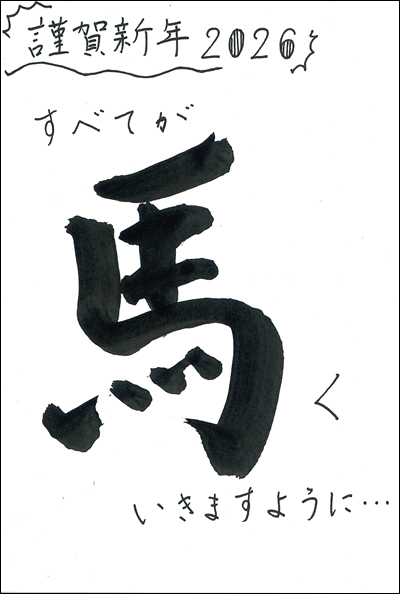 謹賀新年2026
すべてが
馬
く
いきますように…